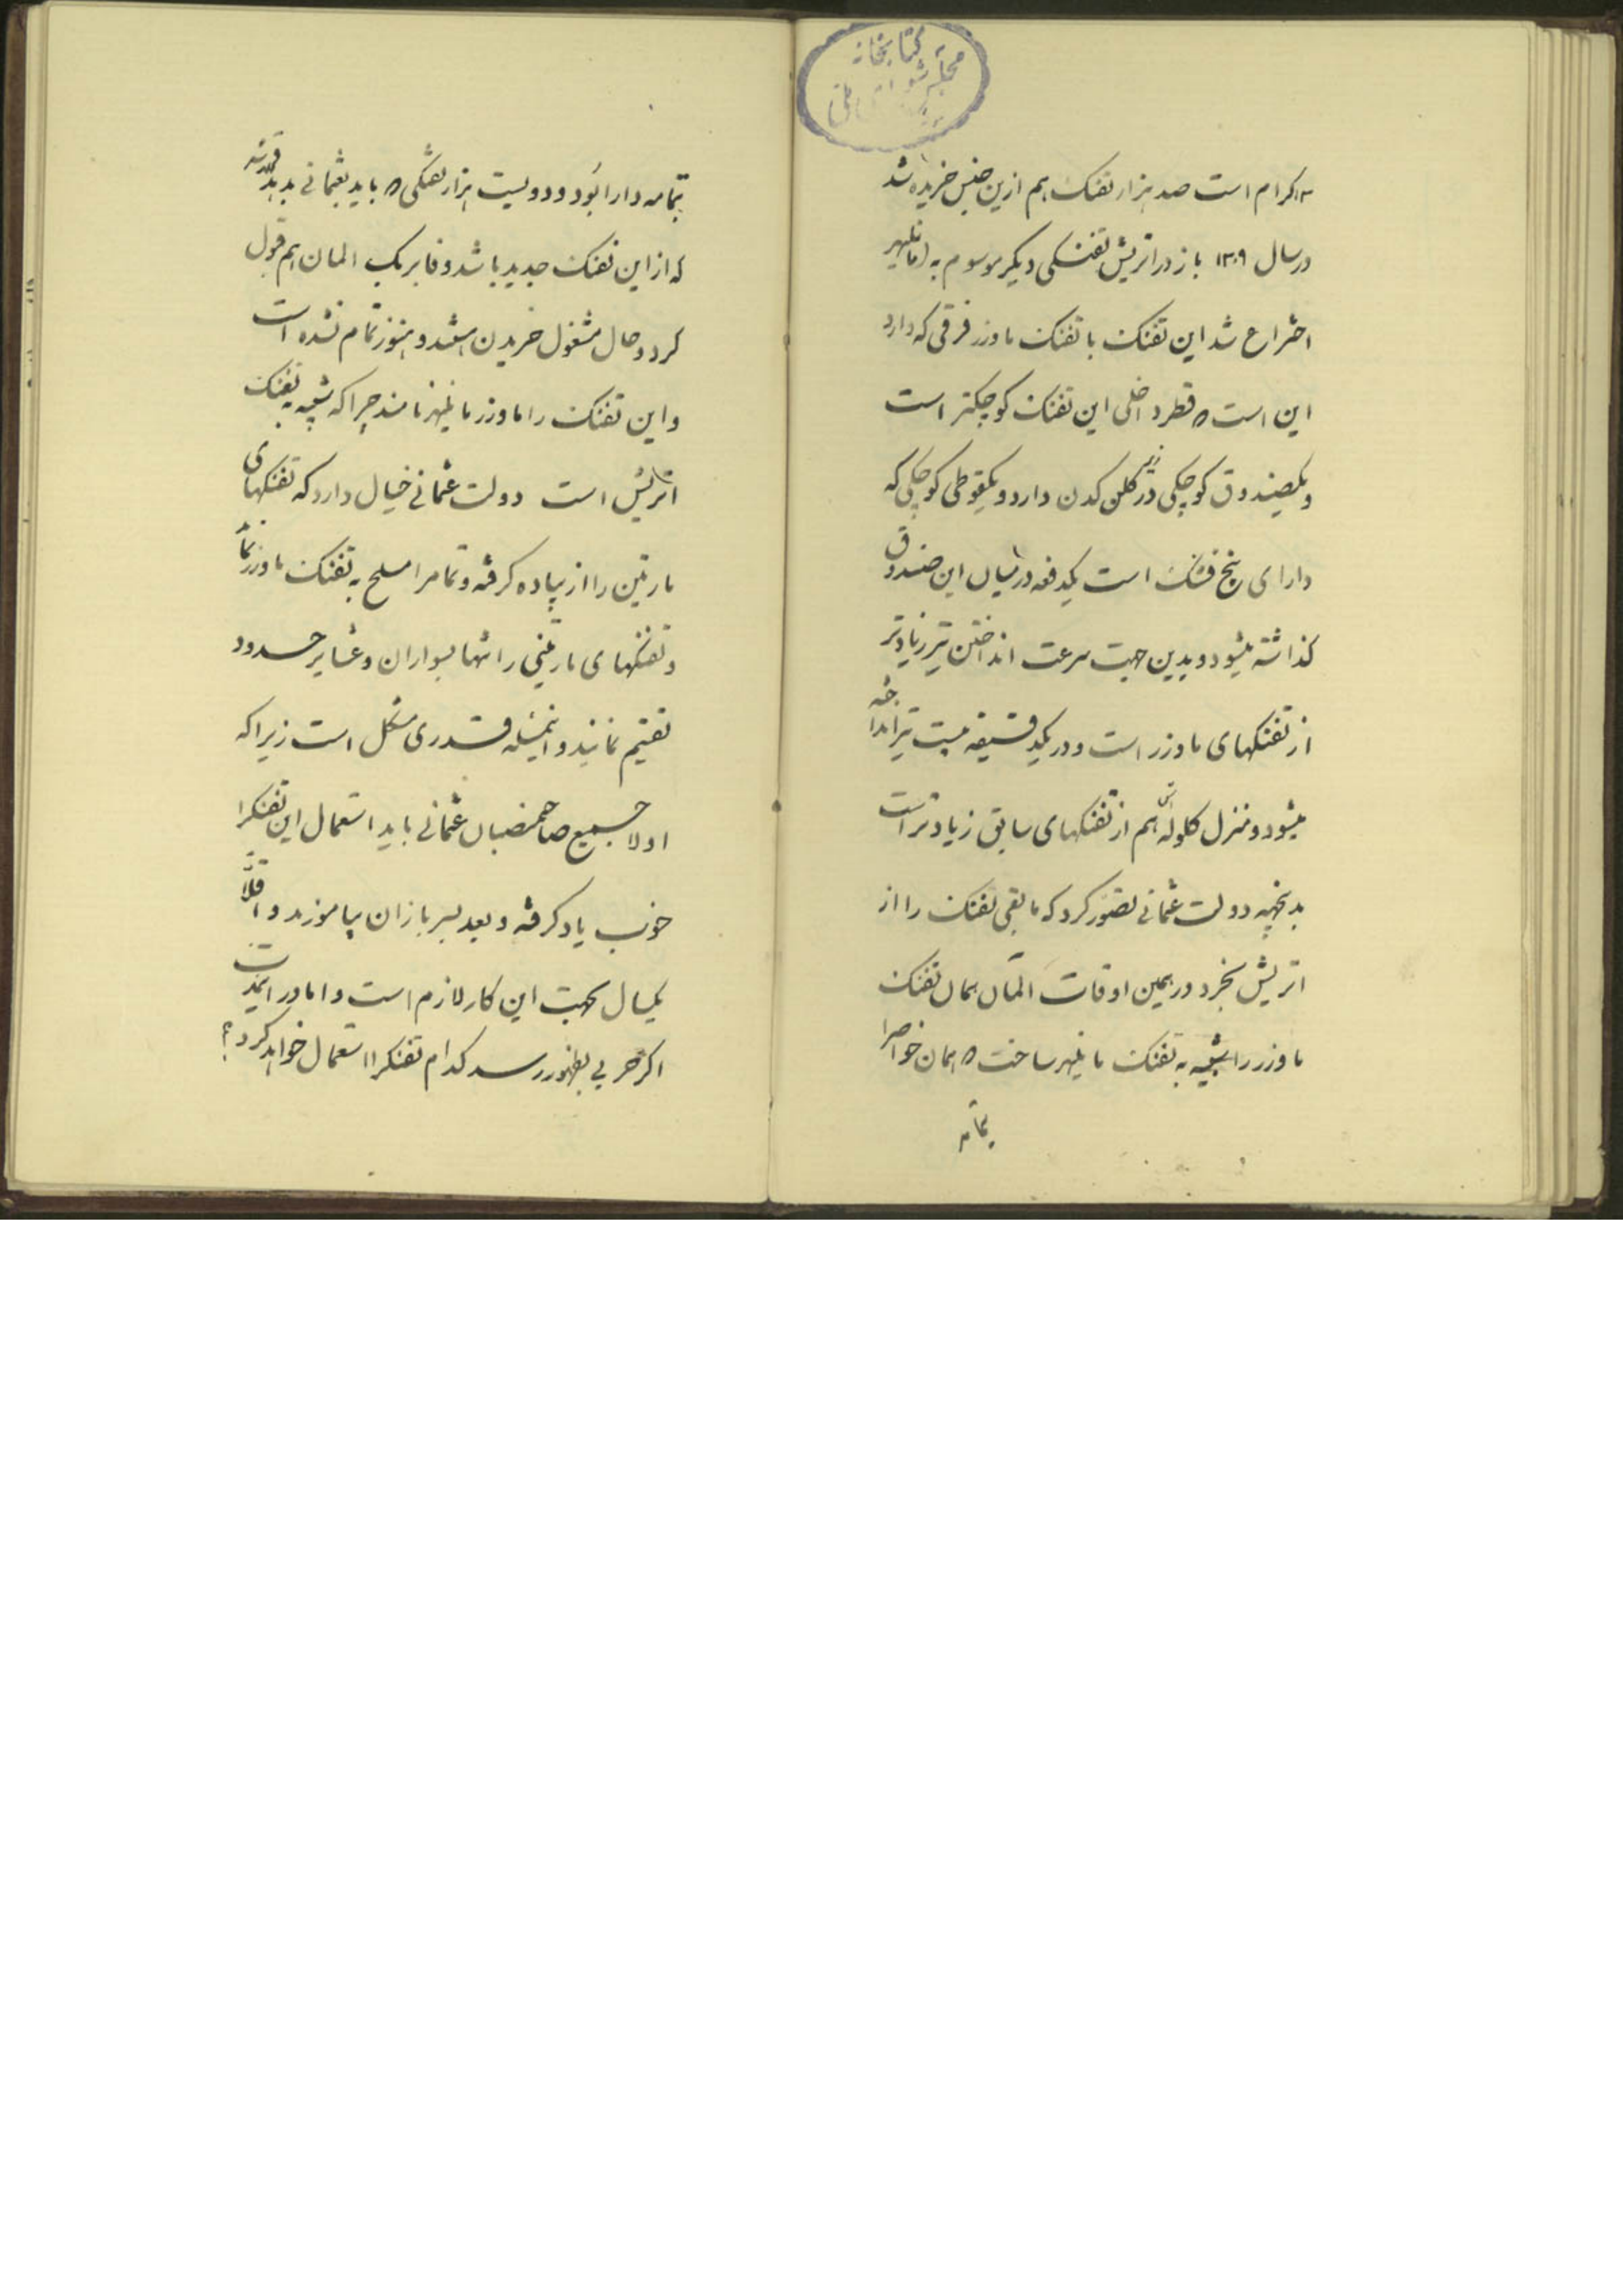 کتابخانه
مجلس شورای ملی
۳ کرام است صد هزار تفنک هم ازین جنس خریده شد
در سال ۱۳۰۹ باز در اتریش تفنکی دیکر موسوم به (مانلیهر
اختراع شد این تفنک با تفنک ماوزر فرقی که دارد
این است که قطر داخلی این تفنک کوچکتر است
و یکصندوق کوچکی در زیر کلن کدن دارد و یکقوطی کوچکی که
دارای پنج فشنک است یکدفعه در میان این صندوق
کذاشته میشود و بدین جهت سرعت انداختن تیر زیادتر
از تفنکهای ماوزر است و در یکدقیقه بیست تیر انداخته
میشود و منزل کلوله اش هم از تفنکهای سابق زیادتر است
بدینجهه دولت عثمانی تصوّر کرد که مابقی تفنک را از
اتریش بخرد در همین اوقات آلمان همان تفنک
ماوزر را شبیه به تفنک مانلیهر ساخت که همان خواصرا
بتمامه
بتمامه دارا بود و دویست هزار تفنکی که باید بعثمانی بدهد قرار شد
که از این تفنک جدید باشد و فابریک المان هم قبول
کرد و حال مشغول خریدن هستند و هنوز تمام نشده است
و این تفنک را ماوزر مانلیهر نامند چرا که شبیه به تفنک
اتریش است دولت عثمانی خیال دارد که تفنکهای
مارتین را از پیاده کرفته و تمامرا مسلح به تفنک ماوزر نماید
و تفنکهای مارتینی را تنها بسواران و عشایر حدود
تقسیم نمایند و اینمسئله قدری مشکل است زیرا که
اولا جمیع صاحمنصبان عثمانی باید استعمال این تفنکرا
خوب یاد کرفته و بعد بسربازان بیاموزند و اقلاً
یکسال بجهت این کار لازم است و اما در اینمدت
اکر حربی بظهور رسد کدام تفنکرا استعمال خواهد کرد؟